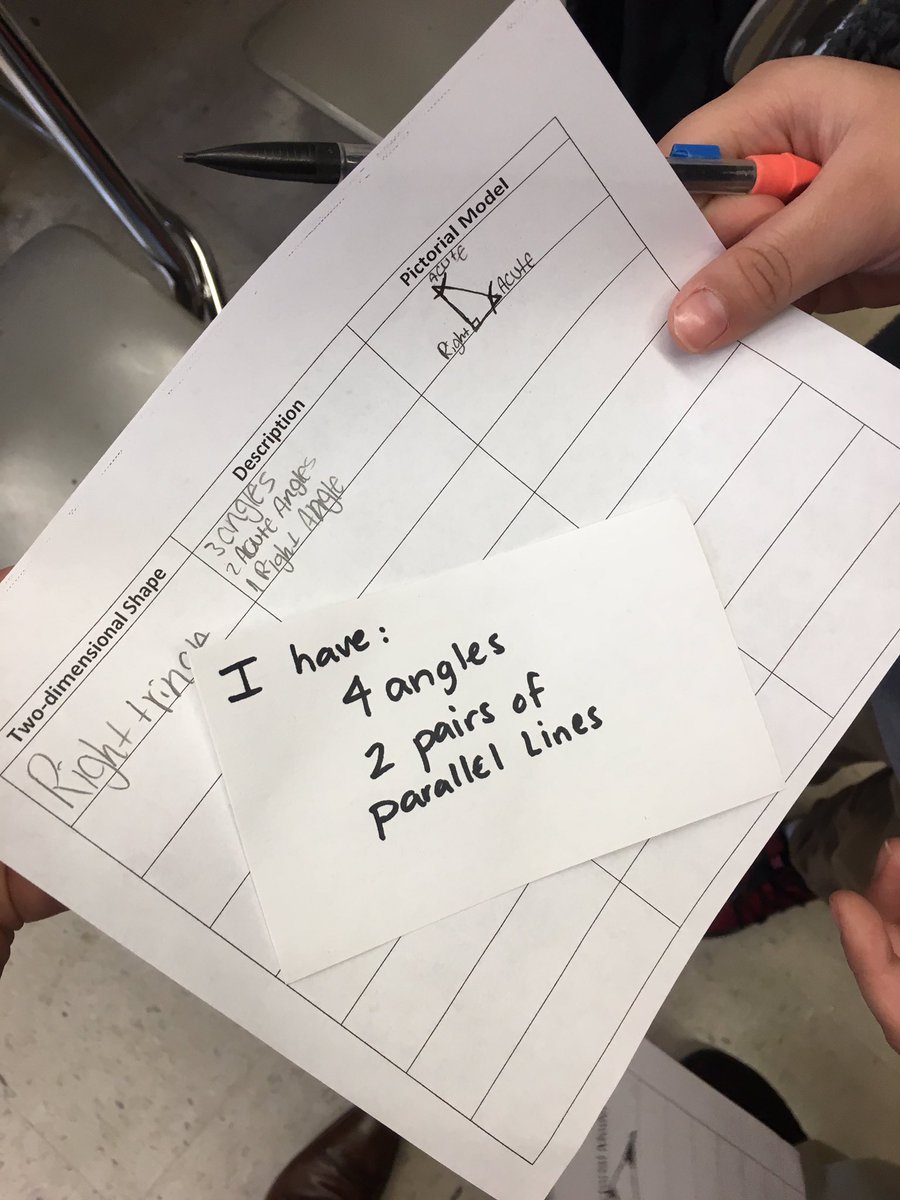 Two-dimensional Shape
Description
Pictorial Model
Right
3 angles
2 Acute Angles
1 Right Angle
Acute
Acute
Right
I have:
4 angles
2 pairs of
parallel Lines